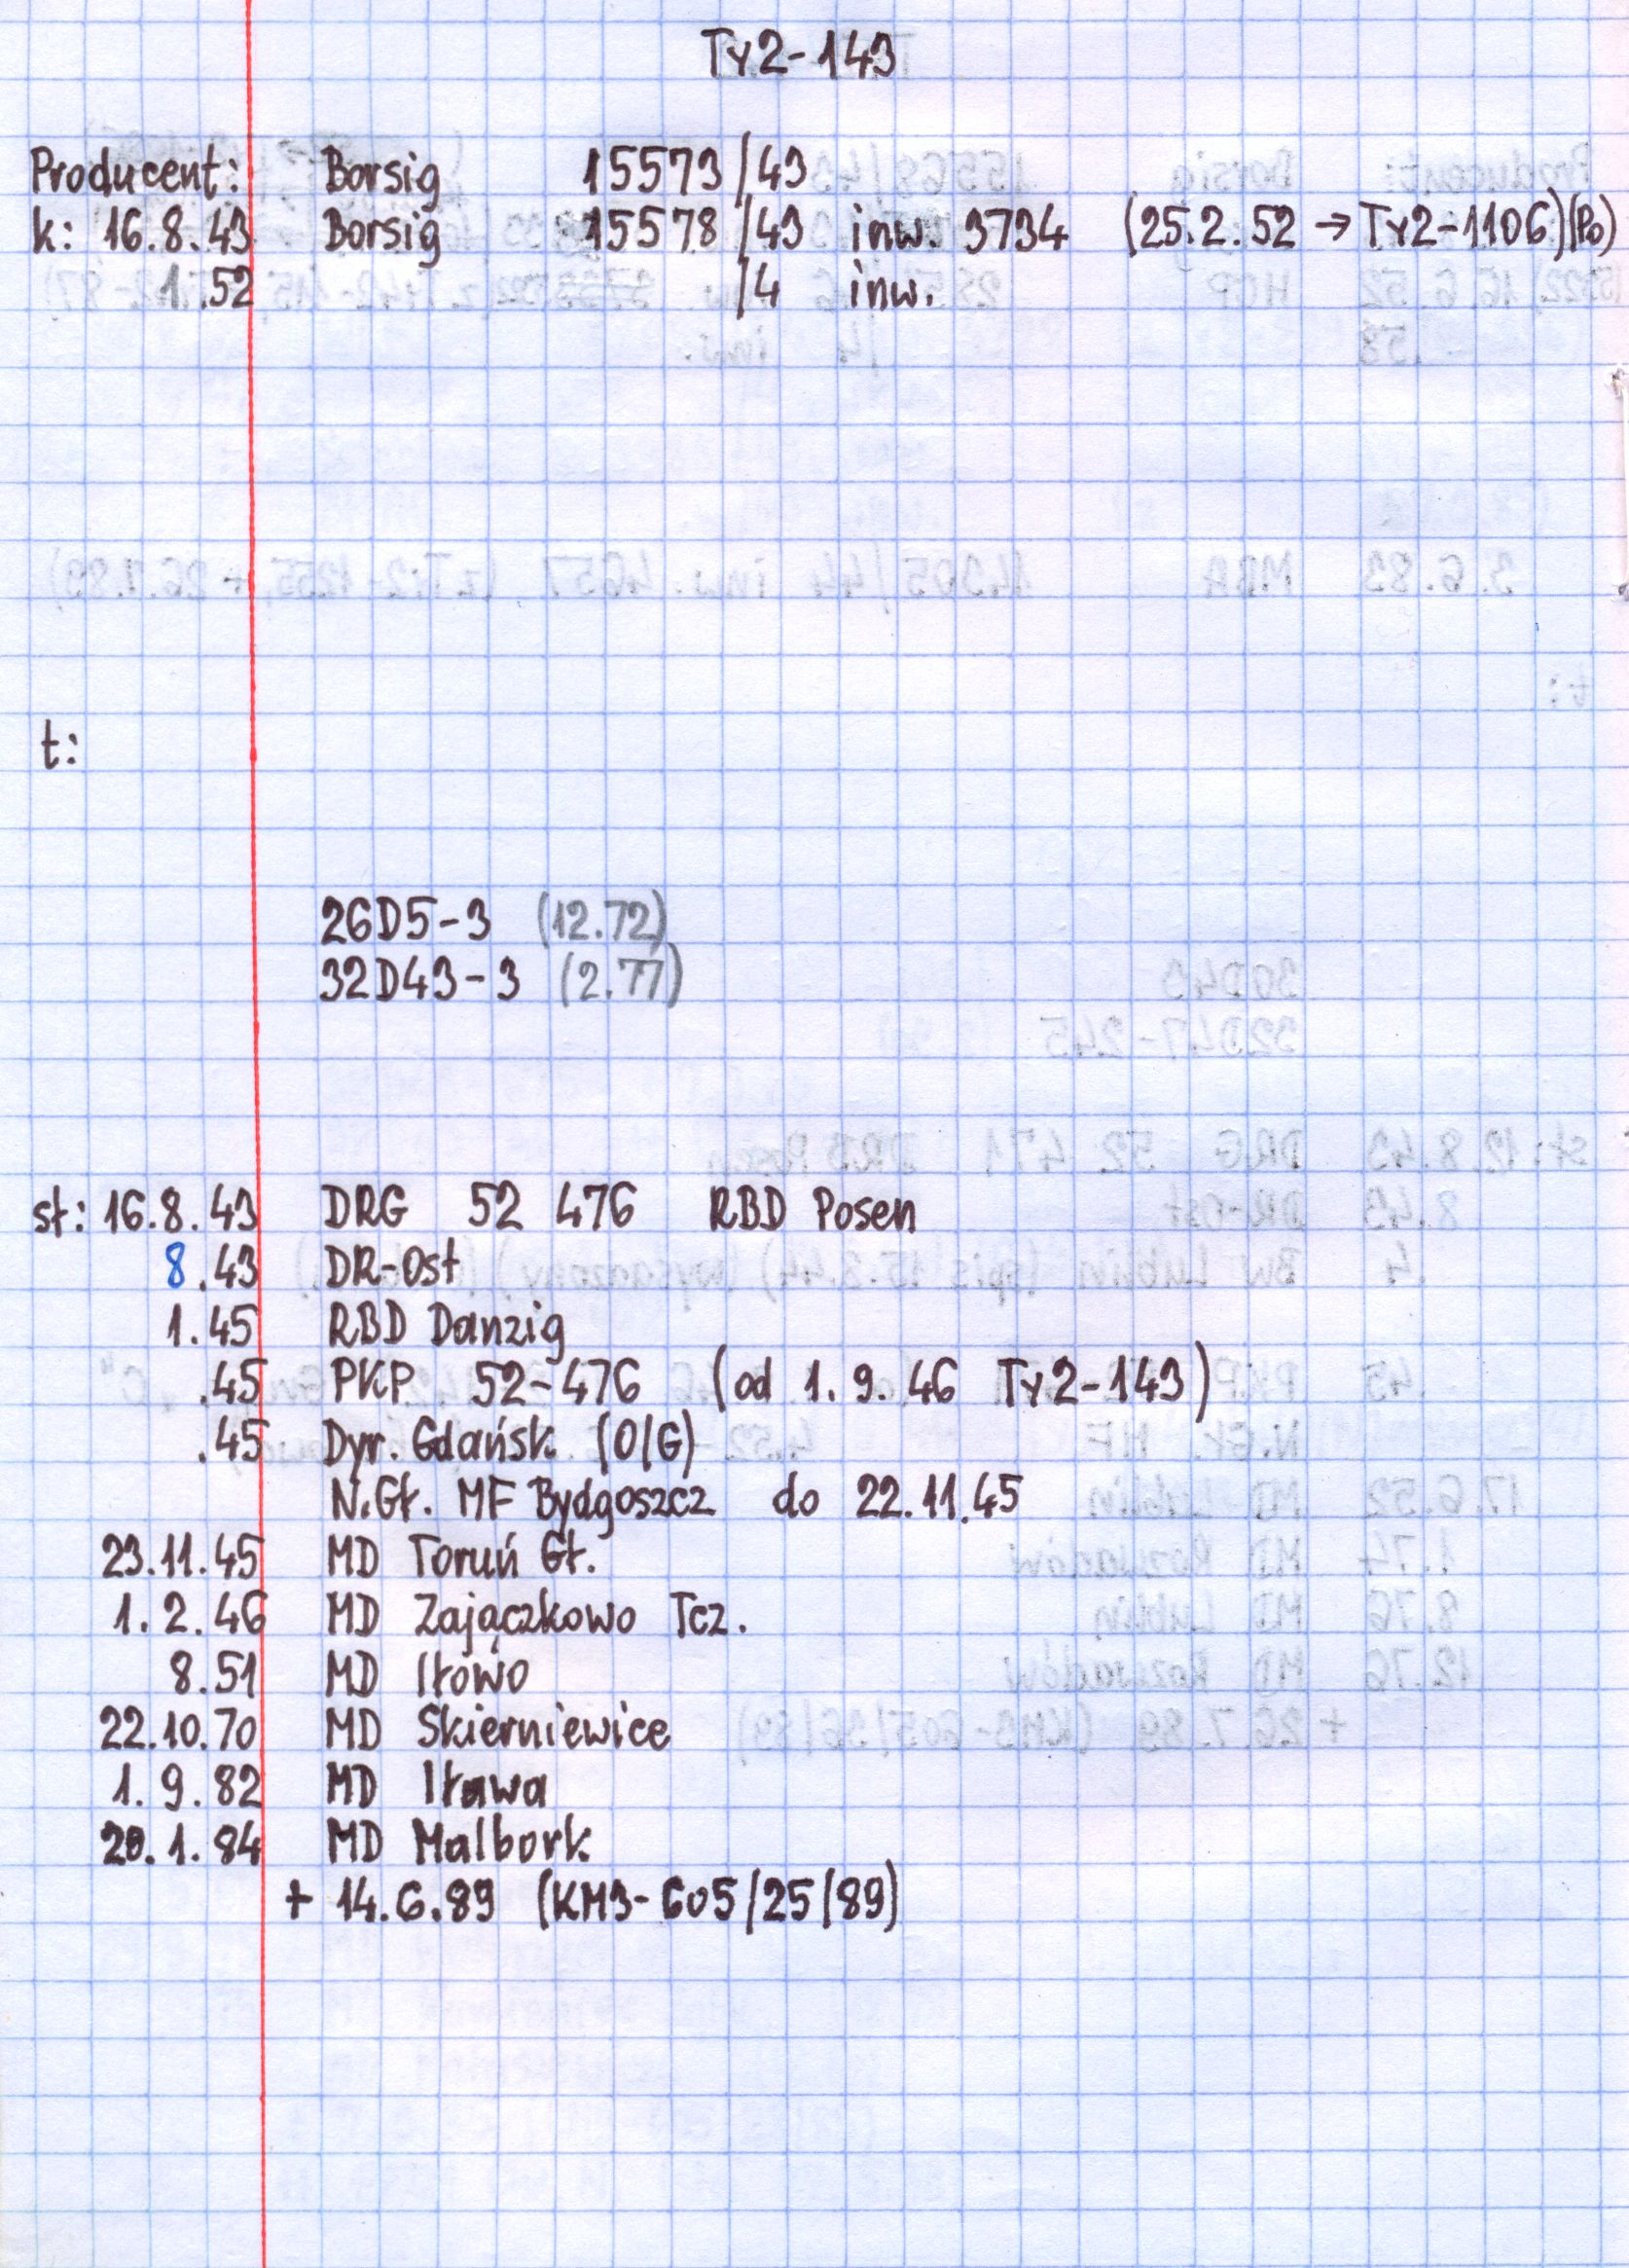 Ty2-143
Producent: Borsig 15573/43
k: 16.8.43 Borsig 15578/43 inw. 3734 (25.2.52 → Ty2-1106)(Po)
1.52 /4 inw.
t:
26D5-3 (12.72)
32D43-3 (2.77)
st: 16.8.43 DRG 52 476 RBD Posen
8.43 DR-Ost
1.45 RBD Danzig
.45 PKP 52-476 (od 1.9.46 Ty2-143)
.45 Dyr. Gdańsk (O/G)
N.Gł. MF Bydgoszcz do 22.11.45
23.11.45 MD Toruń Gł.
1.2.46 MD Zajączkowo Tcz.
8.51 MD Iłowo
22.10.70 MD Skierniewice
1.9.82 MD Iława
20.1.84 MD Malbork
+ 14.6.89 (KM3-605/25/89)